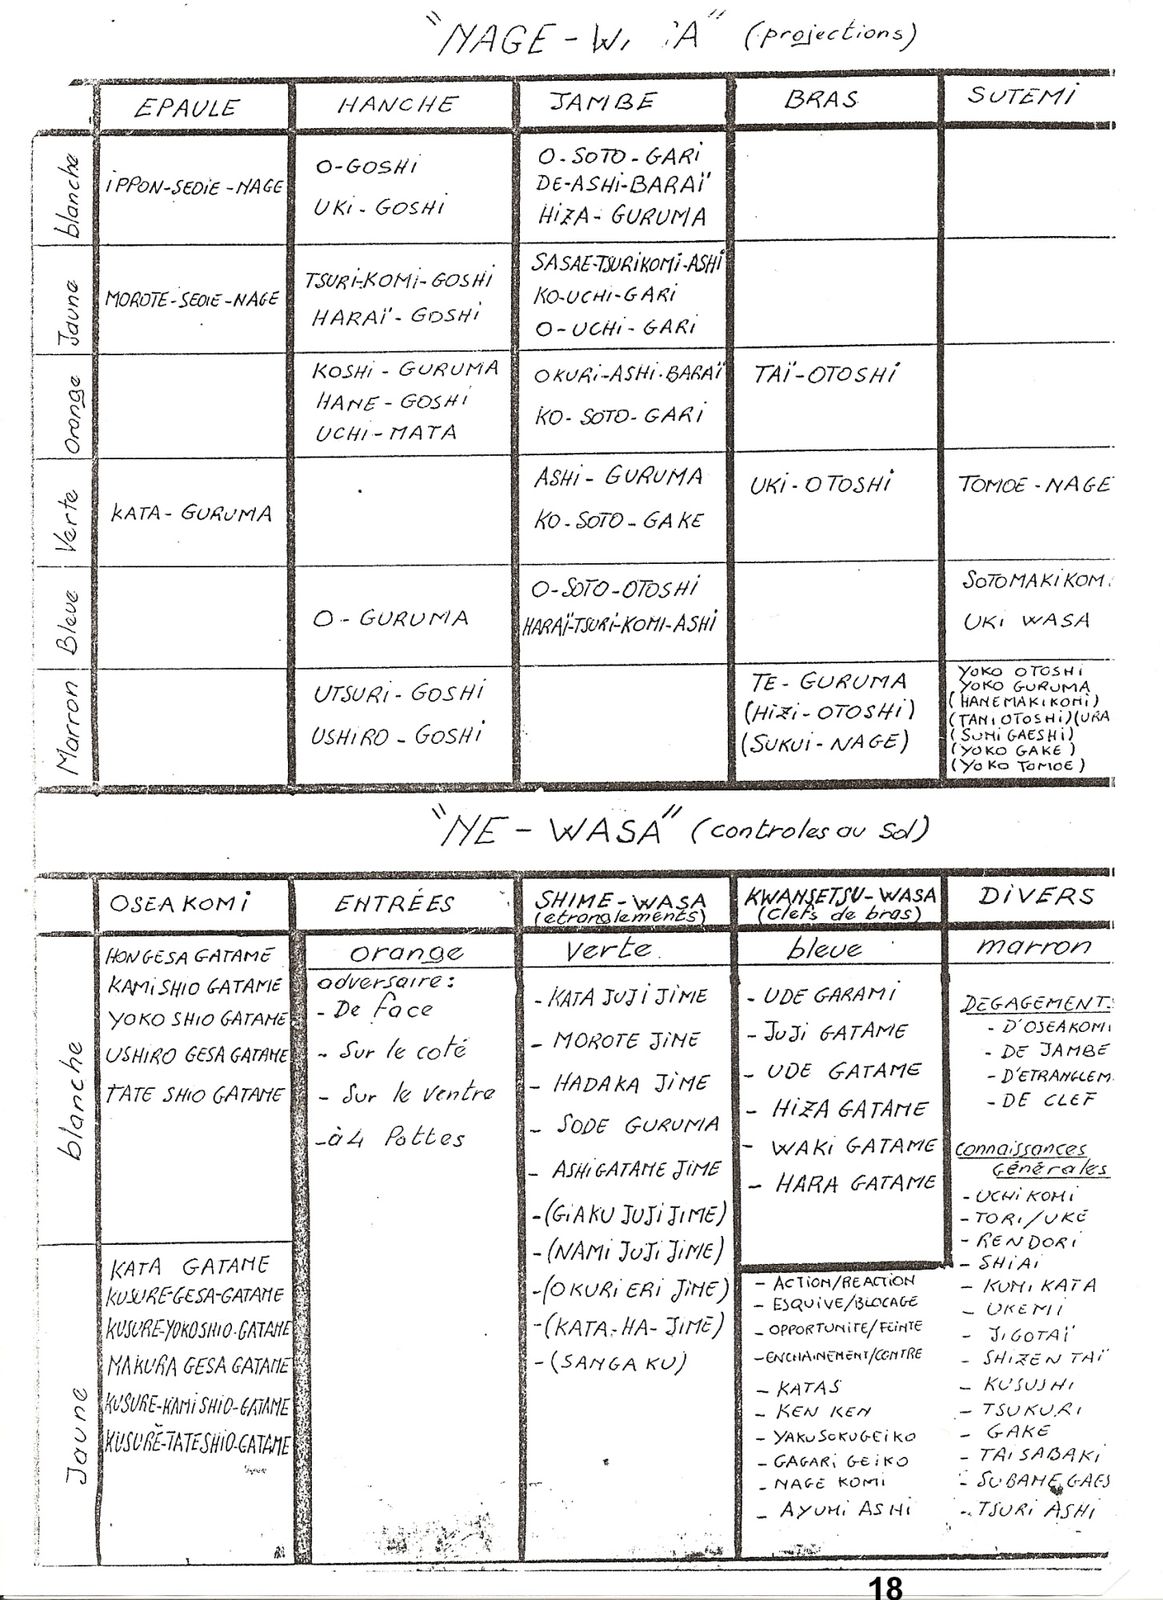 "NAGE-W A" (projections)
EPAULE HANCHE JAMBE BRAS SUTEMI
blanche
IPPON-SEOIE-NAGE
O-GOSHI
UKI-GOSHI
O-SOTO-GARI
DE-ASHI-BARAÏ
HIZA-GURUMA
Jaune
MOROTE-SEOIE-NAGE
TSURI-KOMI-GOSHI
HARAÏ-GOSHI
SASAE-TSURIKOMI-ASHI
KO-UCHI-GARI
O-UCHI-GARI
Orange
KOSHI-GURUMA
HANE-GOSHI
UCHI-MATA
OKURI-ASHI-BARAÏ
KO-SOTO-GARI
TAÏ-OTOSHI
Verte
KATA-GURUMA
ASHI-GURUMA
KO-SOTO-GAKE
UKI-OTOSHI
TOMOE-NAGE
Bleue
O-GURUMA
O-SOTO-OTOSHI
HARAÏ-TSURI-KOMI-ASHI
SOTOMAKIKOM
UKI WASA
Marron
UTSURI-GOSHI
USHIRO-GOSHI
TE-GURUMA
(HIZI-OTOSHI)
(SUKUI-NAGE)
YOKO OTOSHI
YOKO GURUMA
(HANEMAKIKOMI)
(TANI OTOSHI)(URA
(SUMI GAESHI)
(YOKO GAKE)
(YOKO TOMOE)
"NE-WASA" (controles au sol)
OSEAKOMI
ENTRÉES
SHIME-WASA
(etranglements)
KWANSETSU-WASA
(Clefs de bras)
DIVERS
blanche
HON GESA GATAME
KAMI SHIO GATAME
YOKO SHIO GATAME
USHIRO GESA GATAME
TATE SHIO GATAME
Jaune
KATA GATAME
KUSURE-GESA-GATAME
KUSURE-YOKOSHIO-GATAME
MAKURA GESA GATAME
KUSURE-KAMI SHIO-GATAME
KUSURE-TATESHIO-GATAME
orange
adversaire:
- De face
- Sur le coté
- Sur le ventre
- à 4 Pattes
verte
- KATA JUJI JIME
- MOROTE JIME
- HADAKA JIME
- SODE GURUMA
- ASHIGATAME JIME
- (GIAKU JUJI JIME)
- (NAMI JUJI JIME)
- (OKURI ERI JIME)
- (KATA-HA-JIME)
- (SANGAKU)
bleue
- UDE GARAMI
- JUJI GATAME
- UDE GATAME
- HIZA GATAME
- WAKI GATAME
- HARA GATAME
- ACTION/REACTION
- ESQUIVE/BLOCAGE
- OPPORTUNITE/FEINTE
- ENCHAINEMENT/CONTRE
- KATAS
- KEN KEN
- YAKUSOKUGEIKO
- GAGARI GEIKO
- NAGE KOMI
- AYUMI ASHI
marron
DEGAGEMENTS
- D'OSEAKOMI
- DE JAMBE
- D'ETRANGLEM
- DE CLEF
Connaissances
Générales
- UCHIKOMI
- TORI/UKÉ
- RENDORI
- SHIAI
- KUMI KATA
- UKEMI
- JIGOTAÏ
- SHIZEN TAÏ
- KUSUSHI
- TSUKURI
- GAKE
- TAISABAKI
- SUBAME GAES
- TSURI ASHI
18